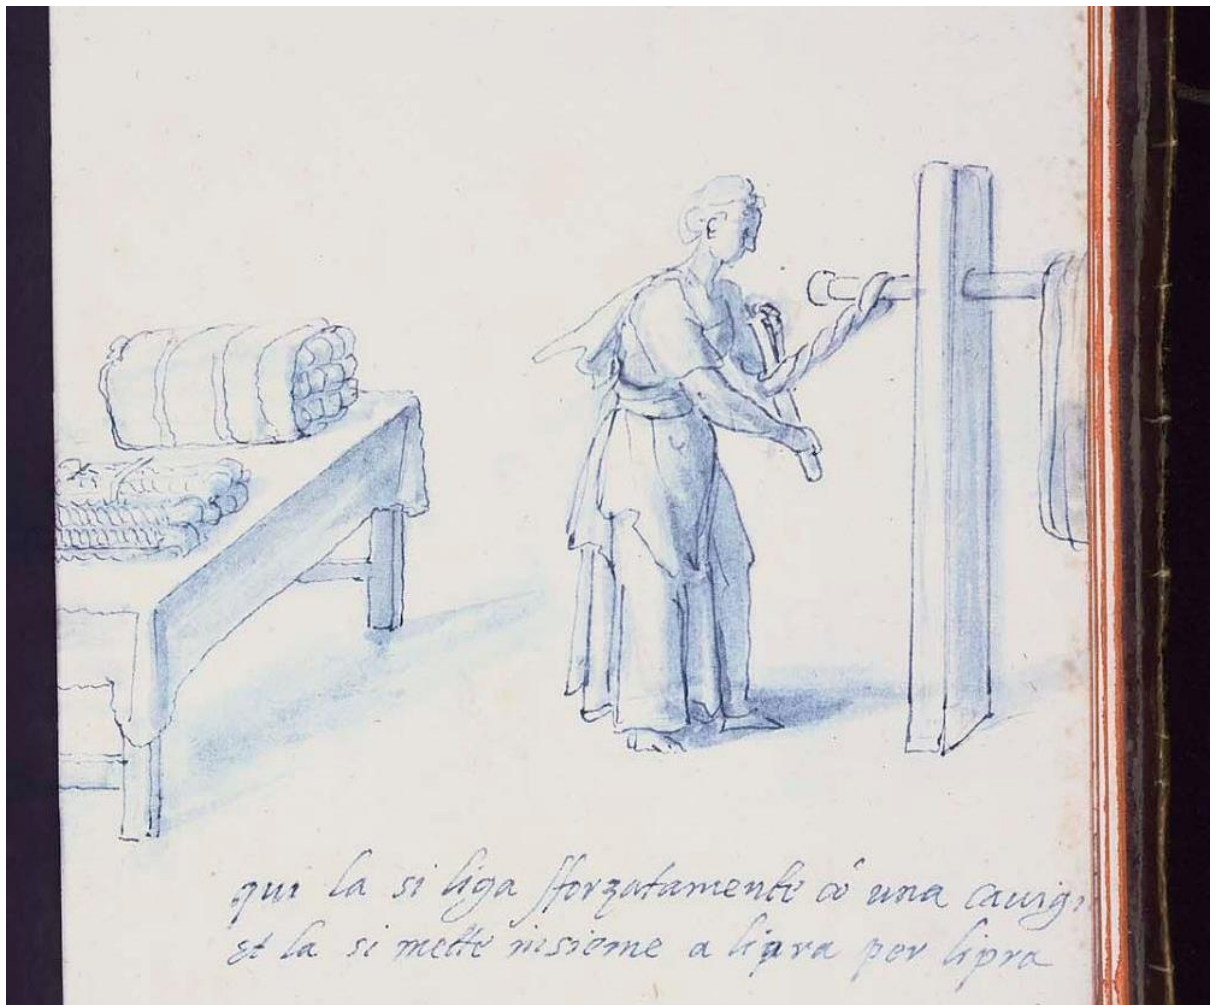 qui la si liga sforzatamente cõ una cavig
et la si mette insieme a lipra per lipra